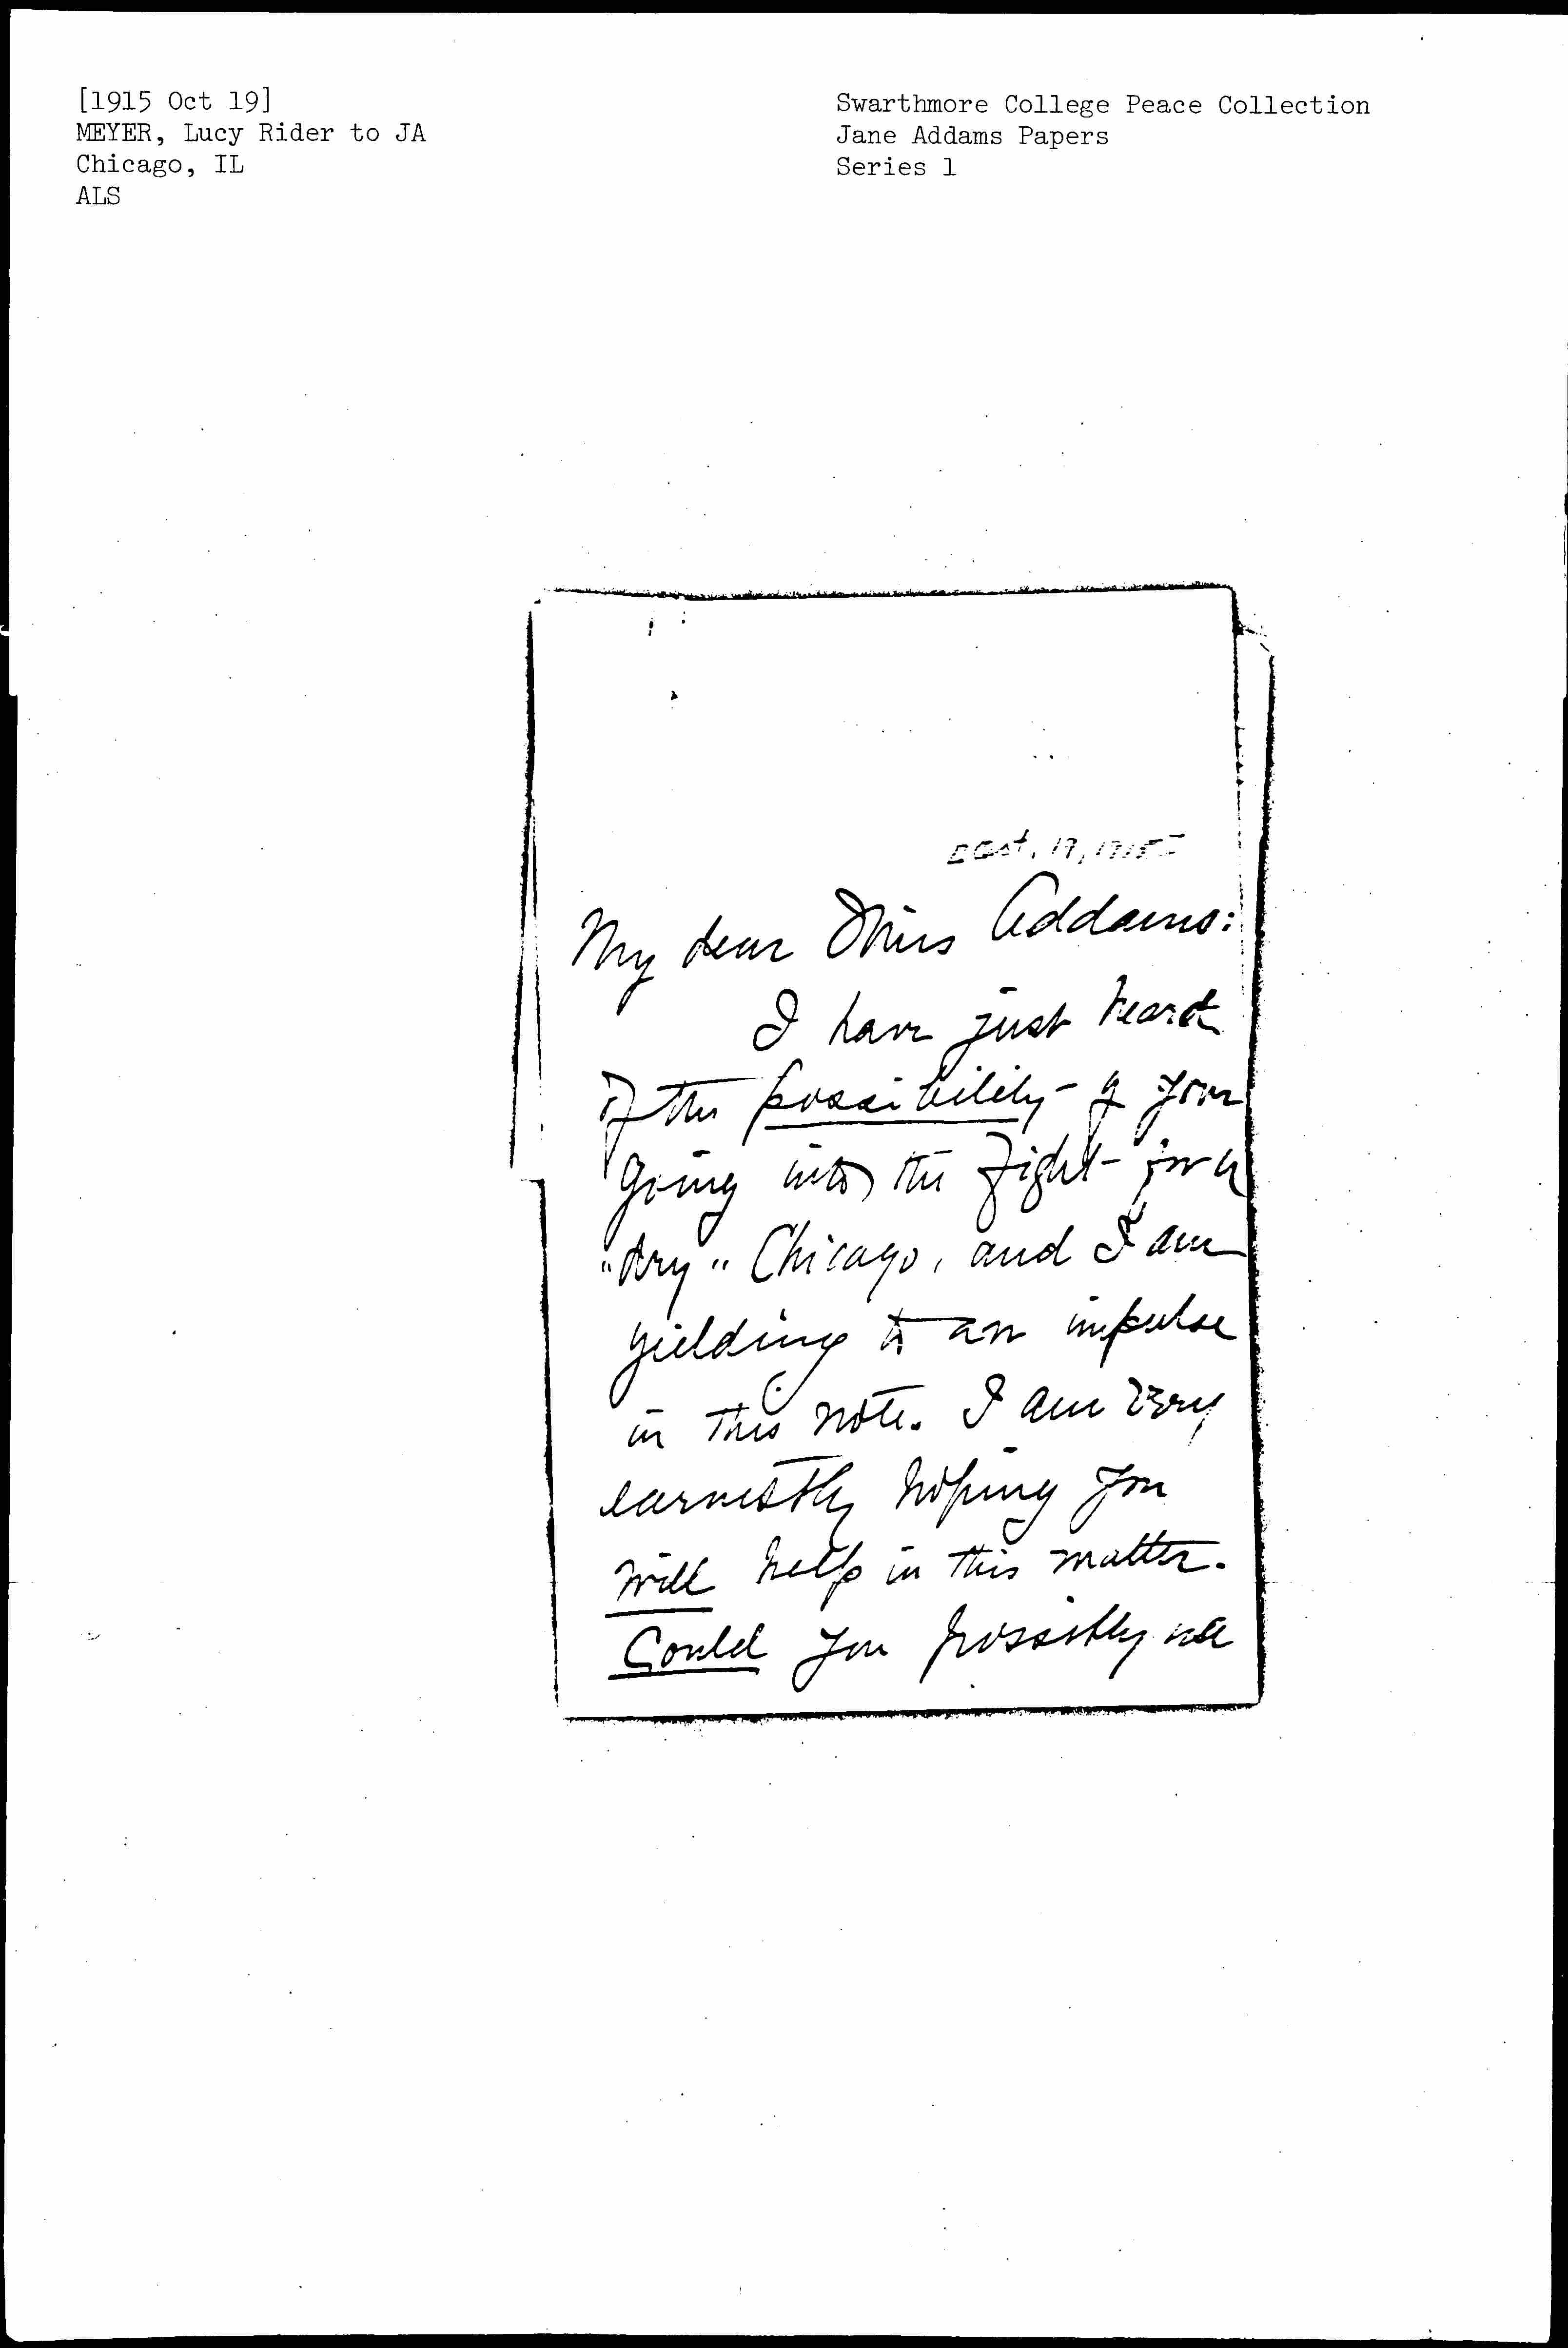 [1915 Oct 19]
MEYER, Lucy Rider to JA
Chicago, IL
ALS
Swarthmore College Peace Collection
Jane Addams Papers
Series 1
[Oct. 19, 1915]
My dear Miss Addams:
I have just heard
of the possibility of your
going into the fight for a
"dry" Chicago, and I am
yielding to an impulse
in this note. I am very
earnestly hoping you
will help in this matter.
Could you possibly use